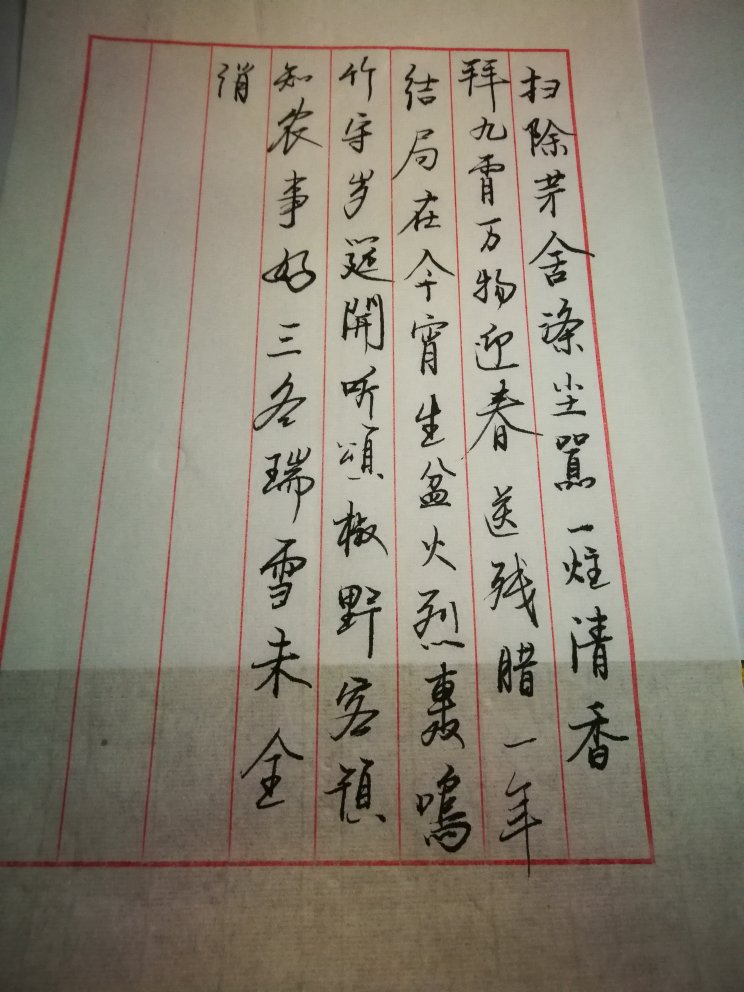 扫除茅舍涤尘嚣一炷清香
拜九霄万物迎春送残腊一年
结局在今宵生盆火烈轰鳴
竹守岁筵開听頌椒野客預
知农事好三冬瑞雪未全
消